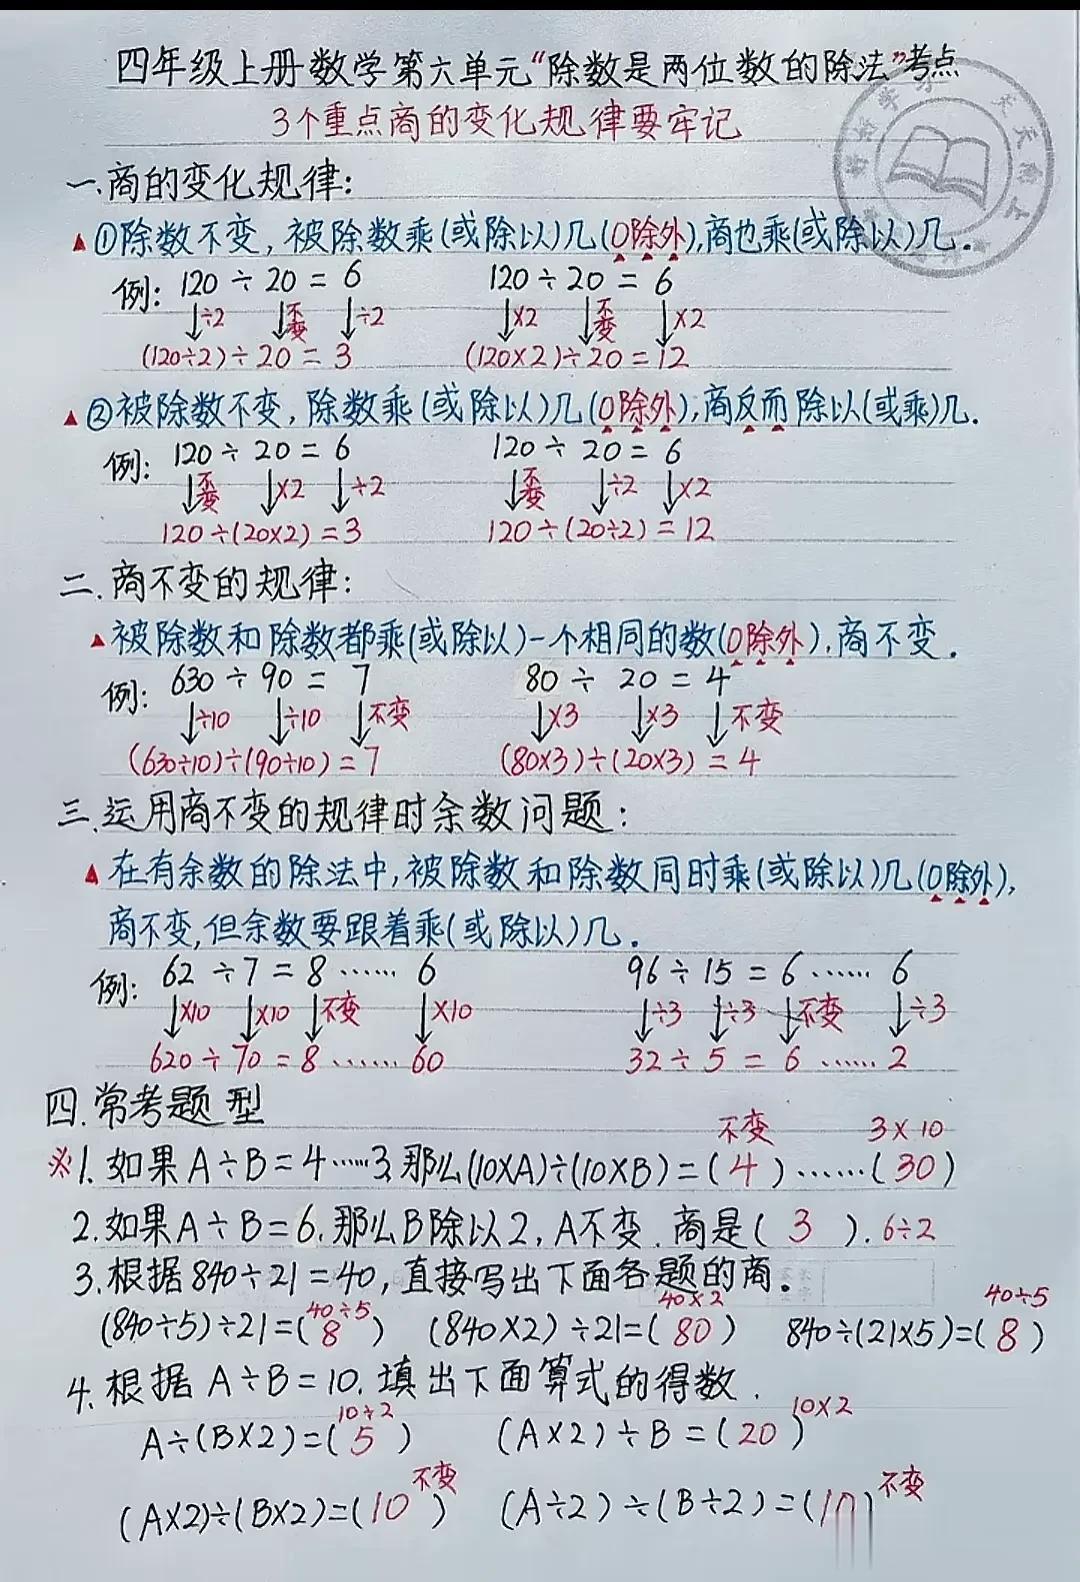 四年级上册数学第六单元“除数是两位数的除法”考点
3个重点商的变化规律要牢记
一、商的变化规律:
▲①除数不变,被除数乘(或除以)几(0除外),商也乘(或除以)几.
例: 120÷20=6 120÷20=6
↓÷2 ↓不变 ↓÷2 ↓×2 ↓不变 ↓×2
(120÷2)÷20=3 (120×2)÷20=12
▲②被除数不变,除数乘(或除以)几(0除外),商反而除以(或乘)几.
例: 120÷20=6 120÷20=6
↓不变 ↓×2 ↓÷2 ↓不变 ↓÷2 ↓×2
120÷(20×2)=3 120÷(20÷2)=12
二.商不变的规律:
▲被除数和除数都乘(或除以)一个相同的数(0除外),商不变.
例: 630÷90=7 80÷20=4
↓÷10 ↓÷10 ↓不变 ↓×3 ↓×3 ↓不变
(630÷10)÷(90÷10)=7 (80×3)÷(20×3)=4
三.运用商不变的规律时余数问题:
▲在有余数的除法中,被除数和除数同时乘(或除以)几(0除外),
商不变,但余数要跟着乘(或除以)几.
例: 62÷7=8……6 96÷15=6……6
↓×10 ↓×10 ↓不变 ↓×10 ↓÷3 ↓÷3 ↓不变 ↓÷3
620÷70=8……60 32÷5=6……2
四.常考题型
不变 3×10
※1.如果A÷B=4……3,那么(10×A)÷(10×B)=(4)……(30)
2.如果A÷B=6.那么B除以2,A不变.商是(3).6÷2
3.根据840÷21=40,直接写出下面各题的商。
40÷5 40×2 40÷5
(840÷5)÷21=(8) (840×2)÷21=(80) 840÷(21×5)=(8)
4.根据A÷B=10.填出下面算式的得数.
10÷2 10×2
A÷(B×2)=(5) (A×2)÷B=(20)
不变 不变
(A×2)÷(B×2)=(10) (A÷2)÷(B÷2)=(10)